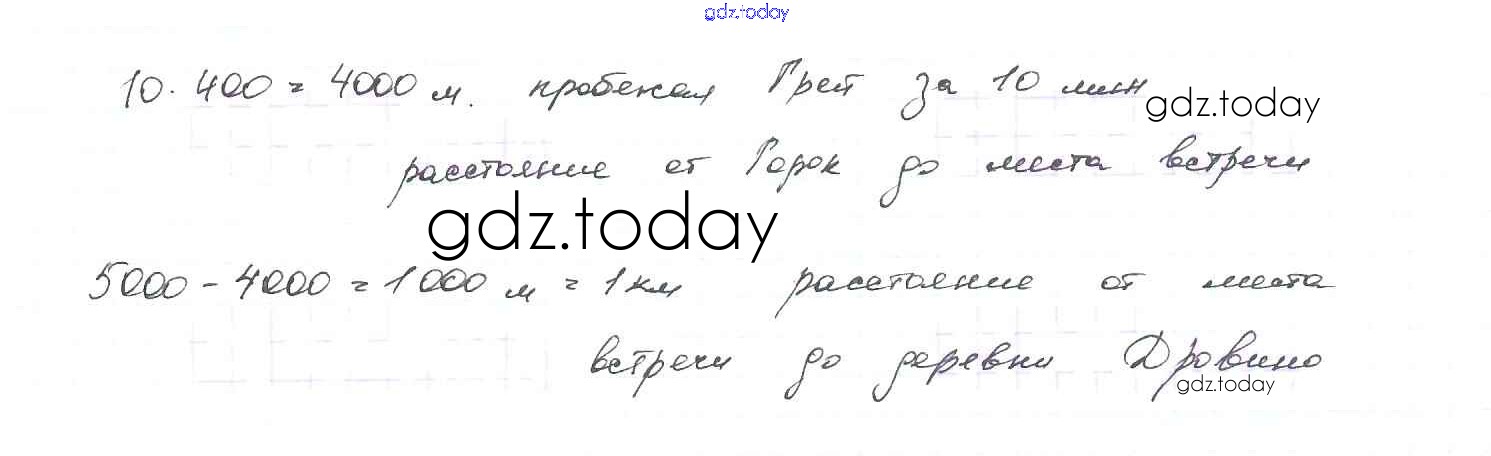 gdz.today
10 · 400 = 4000 м. пробежал Грей за 10 мин
gdz.today
расстояние от Горок до места встречи
gdz.today
5000 - 4000 = 1000 м = 1 км расстояние от места
встречи до деревни Дровино
gdz.today